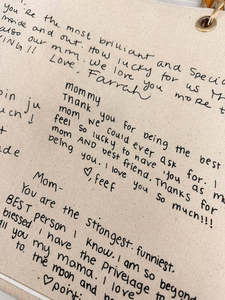 you're the most brilliant and speci
inside and out. How lucky for us th
also our mom. We love you more t
ING!!
Love, Farrah
mommy
Thank you for being the best
mom we could ever ask for. I
feel so lucky to have you as m
mom AND best friend. Thanks for
being you. I love you so much!!!
♡, feef
oin ju
uch ↓
t
ade
Mom-
You are the strongest, funniest,
BEST person I know. I am so beyond
blessed I have the privelage to
all you my mama. I love
to the moon and
♡